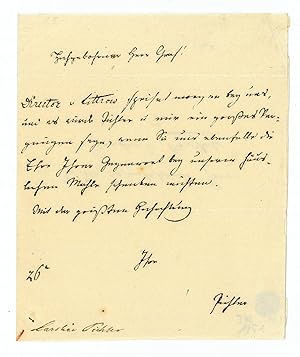 Hochgebohrner Herr Graf!
Director v Littrow speiset morgen bey uns,
und es würde Pichler u mir ein großes Ver-
gnügen seyn, wenn Sie uns ebenfalls die
Ehre Ihrer Gegenwart bey unserm häus-
lichen Mahle schenken möchten.
Mit der größten Hochachtung
Ihre
26"
Pichler
Caroline Pichler